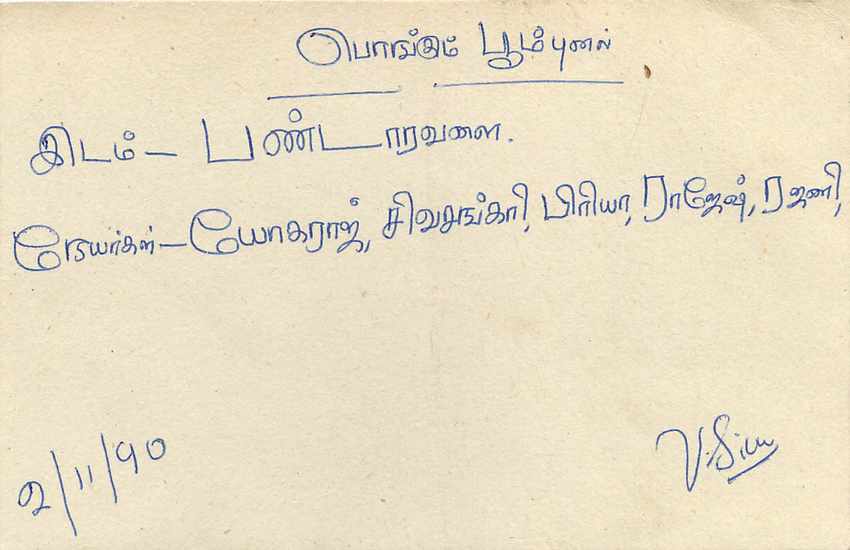 பொங்கும் பூம்புனல்
இடம் - பண்டாரவளை.
நேயர்கள் - யோகராஜ், சிவசங்கரி, பிரியா, ராஜேஷ், ரஜனி,
2/11/90
V.Siva